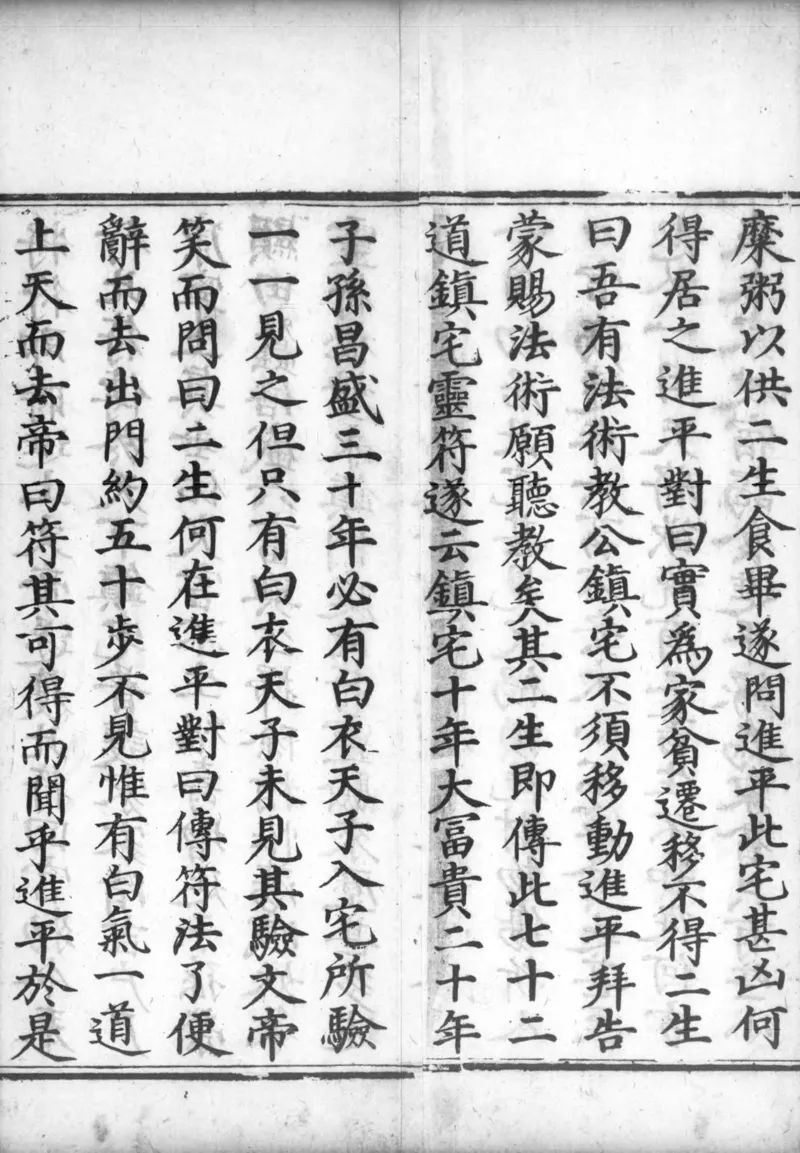 糜粥以供二生食畢遂問進平此宅甚凶何
得居之進平對曰實爲家貧遷移不得二生
曰吾有法術教公鎮宅不須移動進平拜告
蒙賜法術願聽教矣其二生即傳此七十二
道鎮宅靈符遂云鎮宅十年大冨貴二十年
子孫昌盛三十年必有白衣天子入宅所驗
一一見之但只有白衣天子未見其驗文帝
笑而問曰二生何在進平對曰傳符法了便
辭而去出門約五十步不見惟有白氣一道
上天而去帝曰符其可得而聞乎進平於是